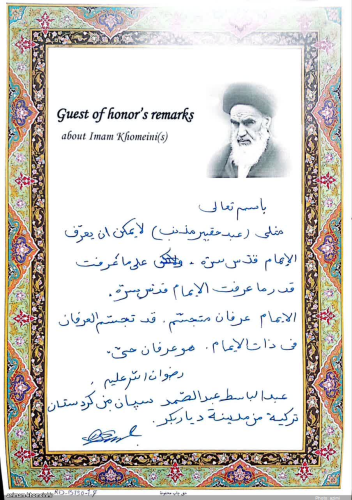 Guest of honor's remarks
about Imam Khomeini(s)
باسمه تعالى
مثلي (عبد حقير مذنب) لا يمكن ان يعرّف
الإمام قدّس سرّه . على ما عرفت
قدر ما عرفت الإمام قدّس سرّه.
الإمام عرفان متجسّم. قد تجسّم العرفان
في ذات الإمام. هو عرفان حيّ.
رضوان الله عليه
عبد الباسط عبد الصّمد سپان من كردستان
تركية من مدينة ديار بكر.